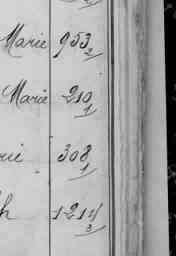 Marie 953
2
Marie 210
1
308
1
h 1214
3